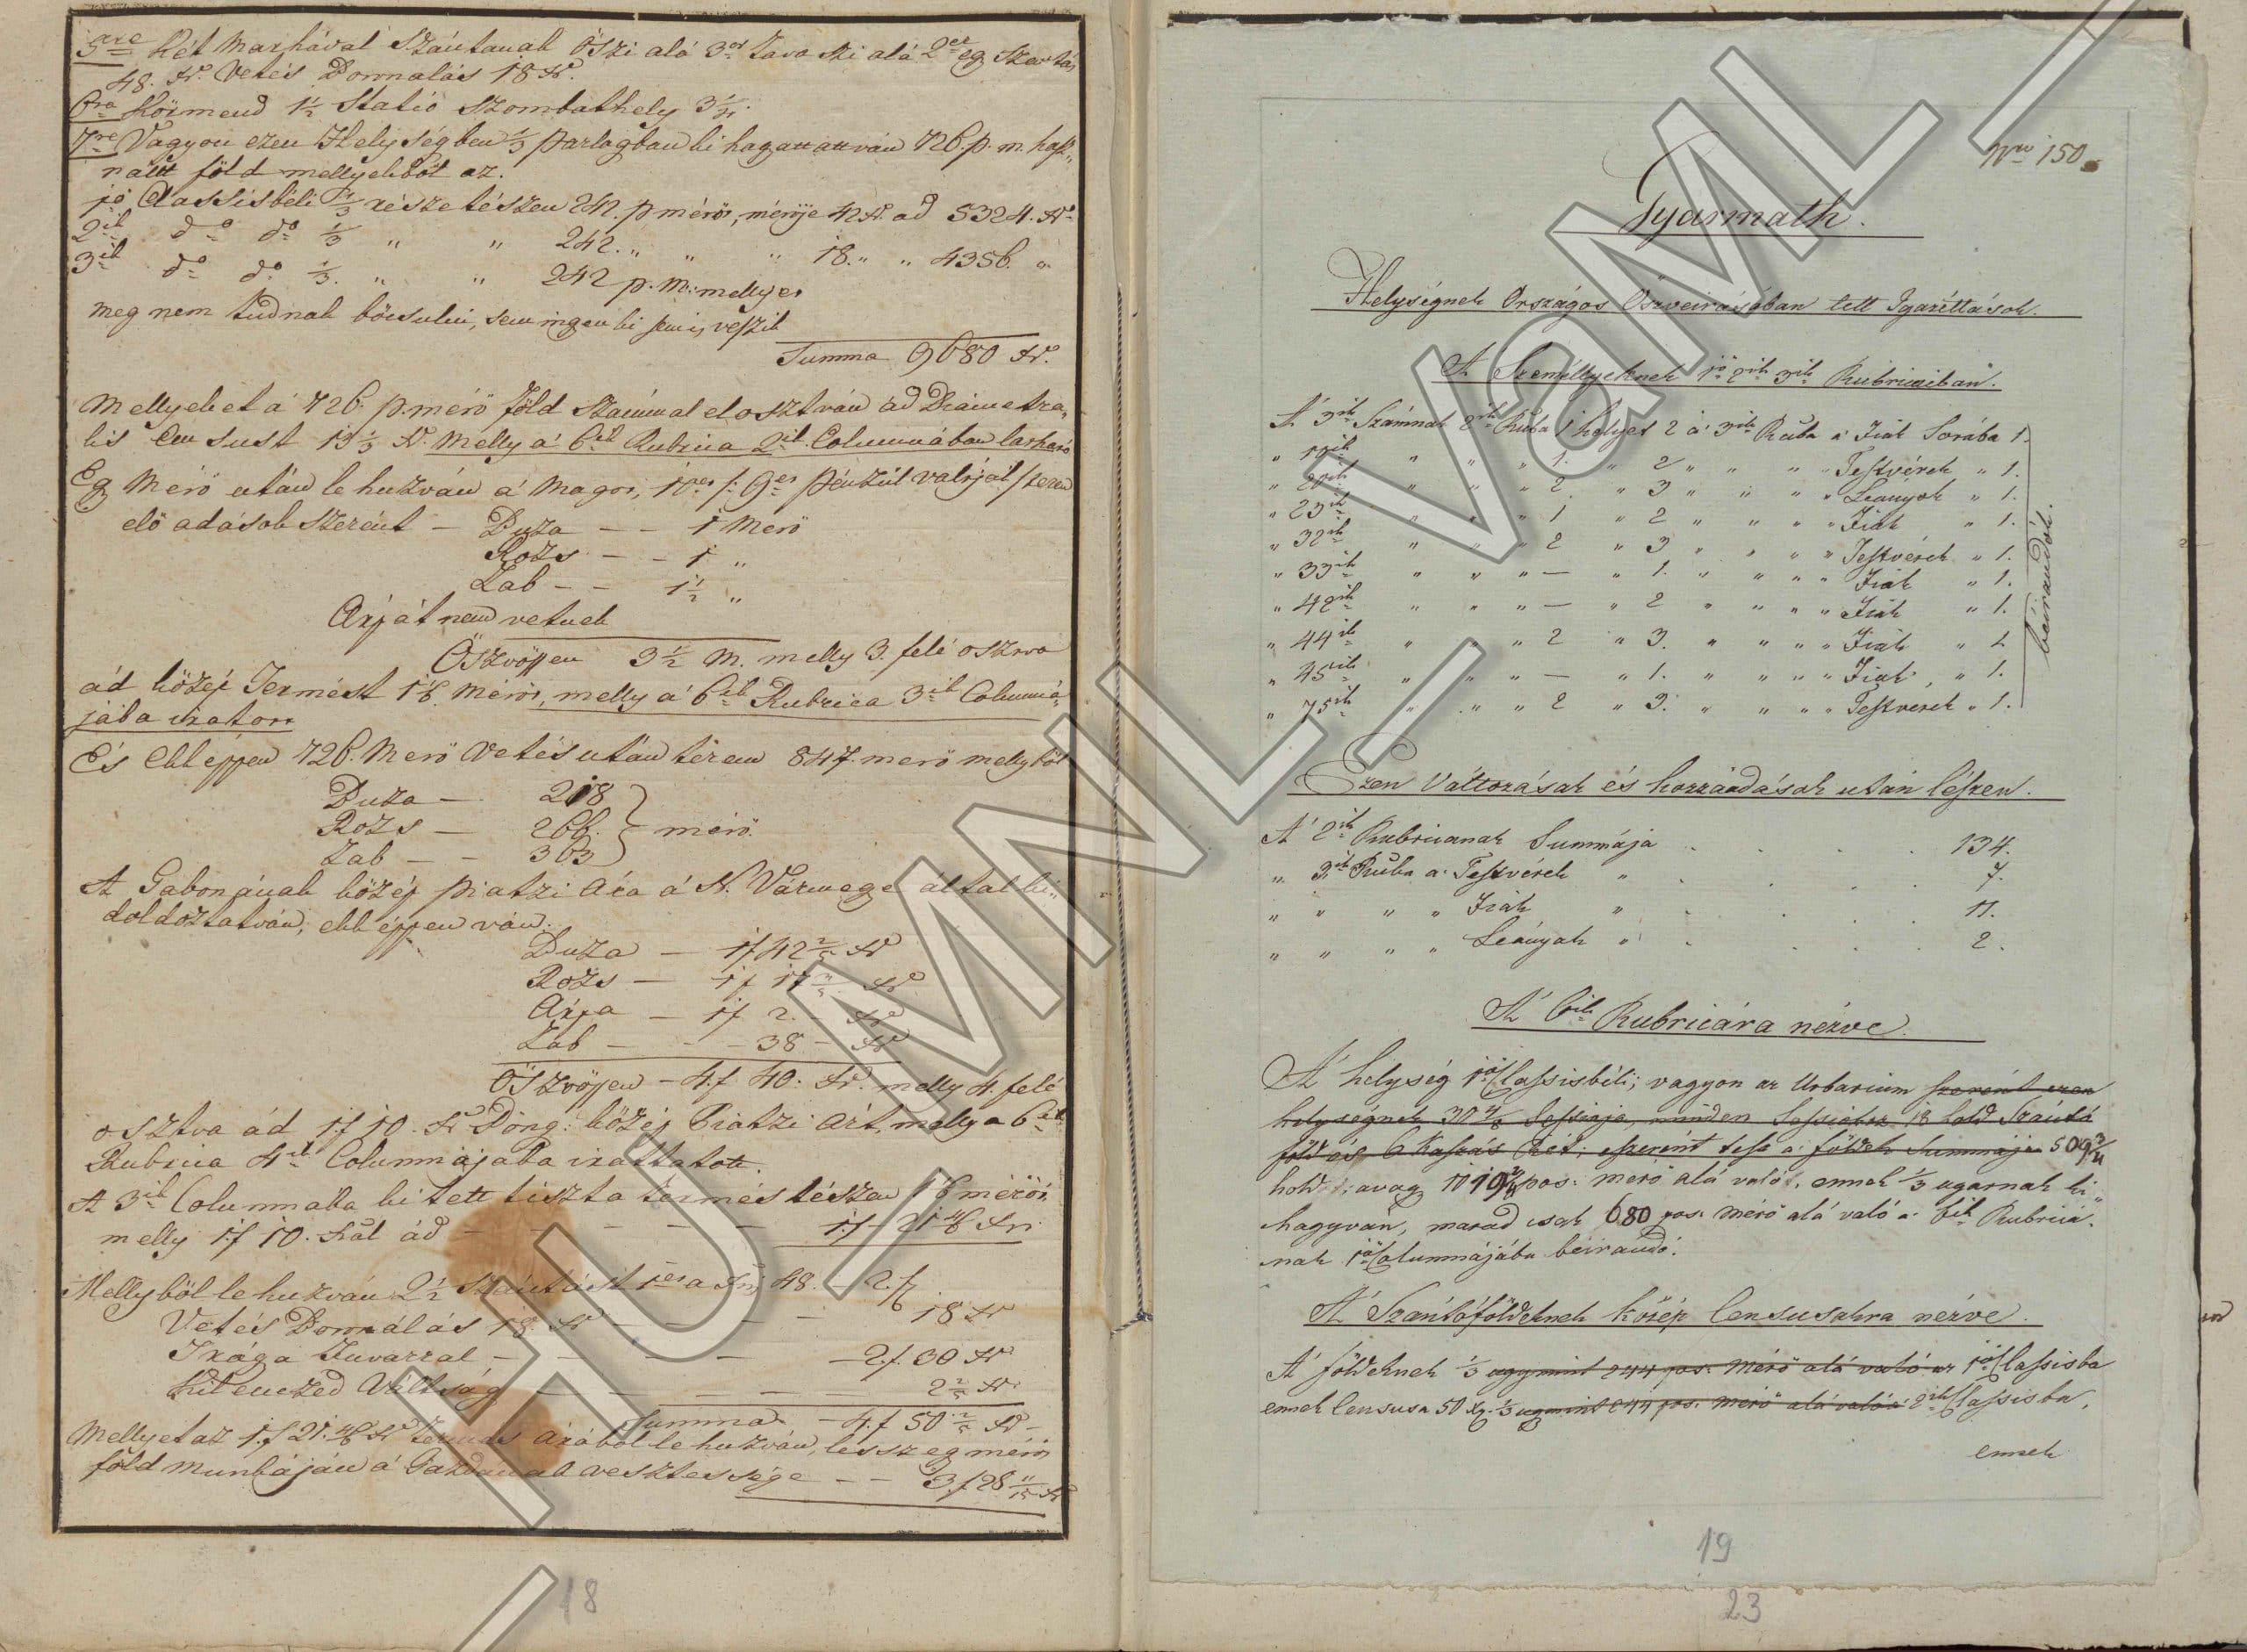 5re Két Marhával Szántanak Öszi alá 3or Tavaszi alá 2er eg Szántás
48. Xr. Vetés Boronalás 18 Xr.
6ra Körmend 1 1/2 Statió Szombathely 3 1/4.
7re Vagyon ezen Helységben 1/3 parlagban ki hagattattván 726. p. m. hasz„
nált föld mellyekböl az.
1ö Classisbéli 1/3 része tészen 242. p mérös, méröje Xr. ad 5324. Xr
2ik do do 1/3 „ „ 242. „ „ „ 18. „ „ 4356. „
3ik do do 1/3. „ „ 242 p. m. mellyet
meg nem tudnak böcsulni, sem ingen ki sem veszik
Summa 9680 Xr.
Mellyeket á 726. p. mérö föld Számmal el osztván ád Diametra„
lis Censust 13 1/3 Xr. Melly á 6ik Rubrica 2ik Columnában
Eg Mérö után le huzván á Magot,
elö adások szerént — Buza — — 1 Merö
Rozs — — 1 „
Zab — — 1 1/2 „
Árpát nem vetnek
Öszvössen 3 1/2 M. melly 3. felé oszva
ád közép Termést 1 1/6 mérös, melly á 6ik Rubrica 3ik Columná„
jába iratott
És ekképpen 726. Merö Vetés után térem 847. merö mellyböl
Buza — 218
Rozs — 266. } mérö.
Zab — — 363
A Gabonának közép piatzi Ára á N. Vármege által ki„
doldoztatván, ekképpen ván.
Buza — 1f 42 2/5 Xr
Rozs — 1f 17 3/5 Xr
Árpa — 1f 2. — Xr
Zab — — — 38 — Xr
Öszvössen — 4. f 40. Xr. melly 4. felé
osztva ád 1f 10. Xr Pong: közép Piatzi Árt, melly a 6ik
Rubrica 4ik Columnájába irattatott.
A 3ik Columnába ki tett tiszta termés tészen 1 1/6 mérös
melly 1f 10. Xál ád — — — — — 1f — 21 4/6 Xr.
Mellyböl le huzván 2 1/2 Szántást 1er a Xr. 48. — 2. f.
Vetés Boronálás 18. Xr — — — — 18 Xr
Trága Fuvarral — — — — — 2. f. 30 Xr
Kilenczed Váltság — — — — — 2 2/5 Xr.
Summa — 4. f 50 2/5 Xr —
Mellyet az 1. f 21. 4/6 Xr Termés Árából le huzván, lessz eg mérös
föld Munkáján á Gazdának vesztessége — — 3. f 28 11/15 Xr
18
Nro 150.
Gyarmath.
Helységnek Országos Öszveirásában tett Igazéttások.
A' Személlyeknek 1ö 2ik 3ik Rubricáiban.
A' 3ik Számnak 2ik Ruba 1 helyet 2 á 3ik Ruba a' Fiak Sorába 1.
„ „ „ „ 1. „ 2 „ „ „ „ Testvérek „ 1.
„ „ „ „ 2. „ 3 „ „ „ „ Leányok „ 1.
„ 23ik „ „ „ 1 „ 2 „ „ „ „ Fiak „ 1.
„ 32ik „ „ „ 2 „ 3 „ „ „ „ Testvérek „ 1.
„ 33ik „ „ „ — „ 1. „ „ „ „ Fiak „ 1.
„ 42ik „ „ „ — „ 2 „ „ „ „ Fiak „ 1.
„ 44ik „ „ „ 2 „ 3. „ „ „ „ Fiak „ 1
„ 45ik „ „ „ — „ 1. „ „ „ „ Fiak „ 1.
„ 75ik „ „ „ 2 „ 3. „ „ „ „ Testverek „ 1.
béirandók.
Ezen Váltózások és hozzáadások után lészen.
A' 2ik Rubricanak Summája . . . . 134.
„ 3ik Ruba a' Testvérek „ . . . . 7.
„ „ „ „ Fiak „ . . . . 11.
„ „ „ „ Leányok „ . . . . 2.
A' 6ik Rubricára nézve.
A' helység 1ö Classisbéli; vagyon az Urbarium szerént ezen
helységnek 30 4/8 Sessioja, minden Sessiohoz 18 hold Szántó
föld és 6 Kaszás Rét; eszerint tesz a' földek Summája 509 3/4
hold: avag 1019 2/4 pos: mérö alá valót, ennek 1/3 ugarnak ki„
hagyván, marad csak 680 pos: mérö alá való a' 6ik Rubricá„
nak 1ö Columnájába béirandó.
A' Szántóföldeknek Közép Censusakra nézve.
A' földeknek 1/3 ugymint 244 pos: mérö alá való az 1ö Classisba
ennek Censusa 50 Xr. 1/3 ugymint 244 pos: mérö alá való a' 2ik Classisba,
ennek
19
23